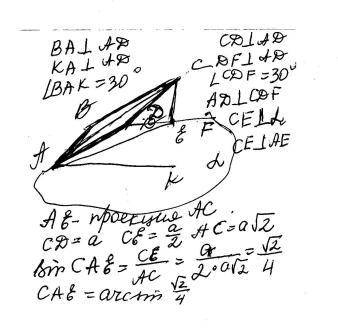 BA⊥AD
KA⊥AD
∠BAK=30°
CD⊥AD
DF⊥AD
∠CDF=30°
AD⊥CDF
CE⊥α
CE⊥AE
B
C
D
E
F
A
K
α
AE - проекция AC.
CD=a CE=a/2 AC=a√2
sin CAE=CE/AC=a/2·a√2=√2/4
CAE=arcsin √2/4